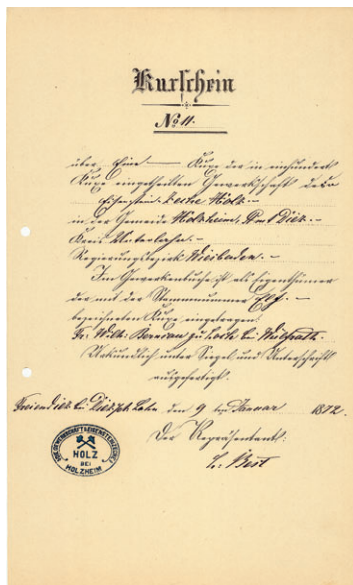 Kuxschein
No. 11.
über Eine — Kuxe der in einhundert
Kuxe eingetheilten Gewerkschaft der
Eisenstein-Zeche Holz.—
in der Gemeinde Holzheim, Amt Diez.—
Kreis Unterlahn.—
Regierungsbezirk Wiesbaden.—
Im Gewerkenbuche ist als Eigenthümer
der mit der Stammnummer Elf.—
bezeichneten Kuxe eingetragen:
Fr. Wilh. zu bei Wülfrath.
Urkundlich unter Siegel und Unterschrift
ausgefertigt.
Freiendiez bei Diez Lahn den 9 ten Januar 18
Der Repräsentant:
Best
HOLZ
BEI
HOLZHEIM